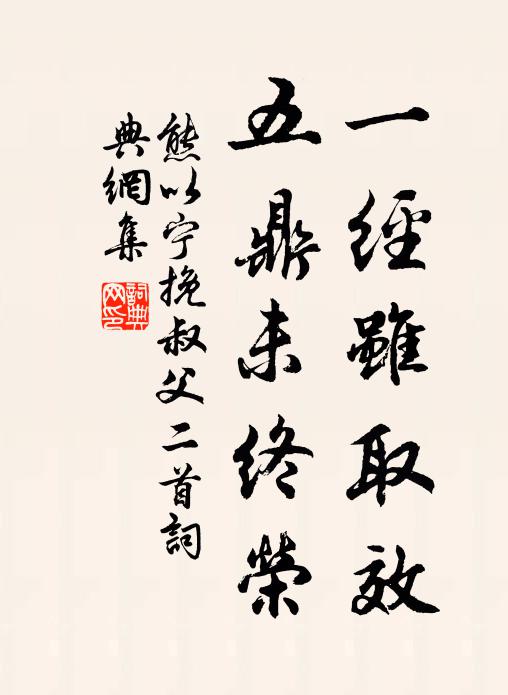 一經雖取效
五鼎未終榮
熊以宁挽叔父二首詞
典網集
詞典網印